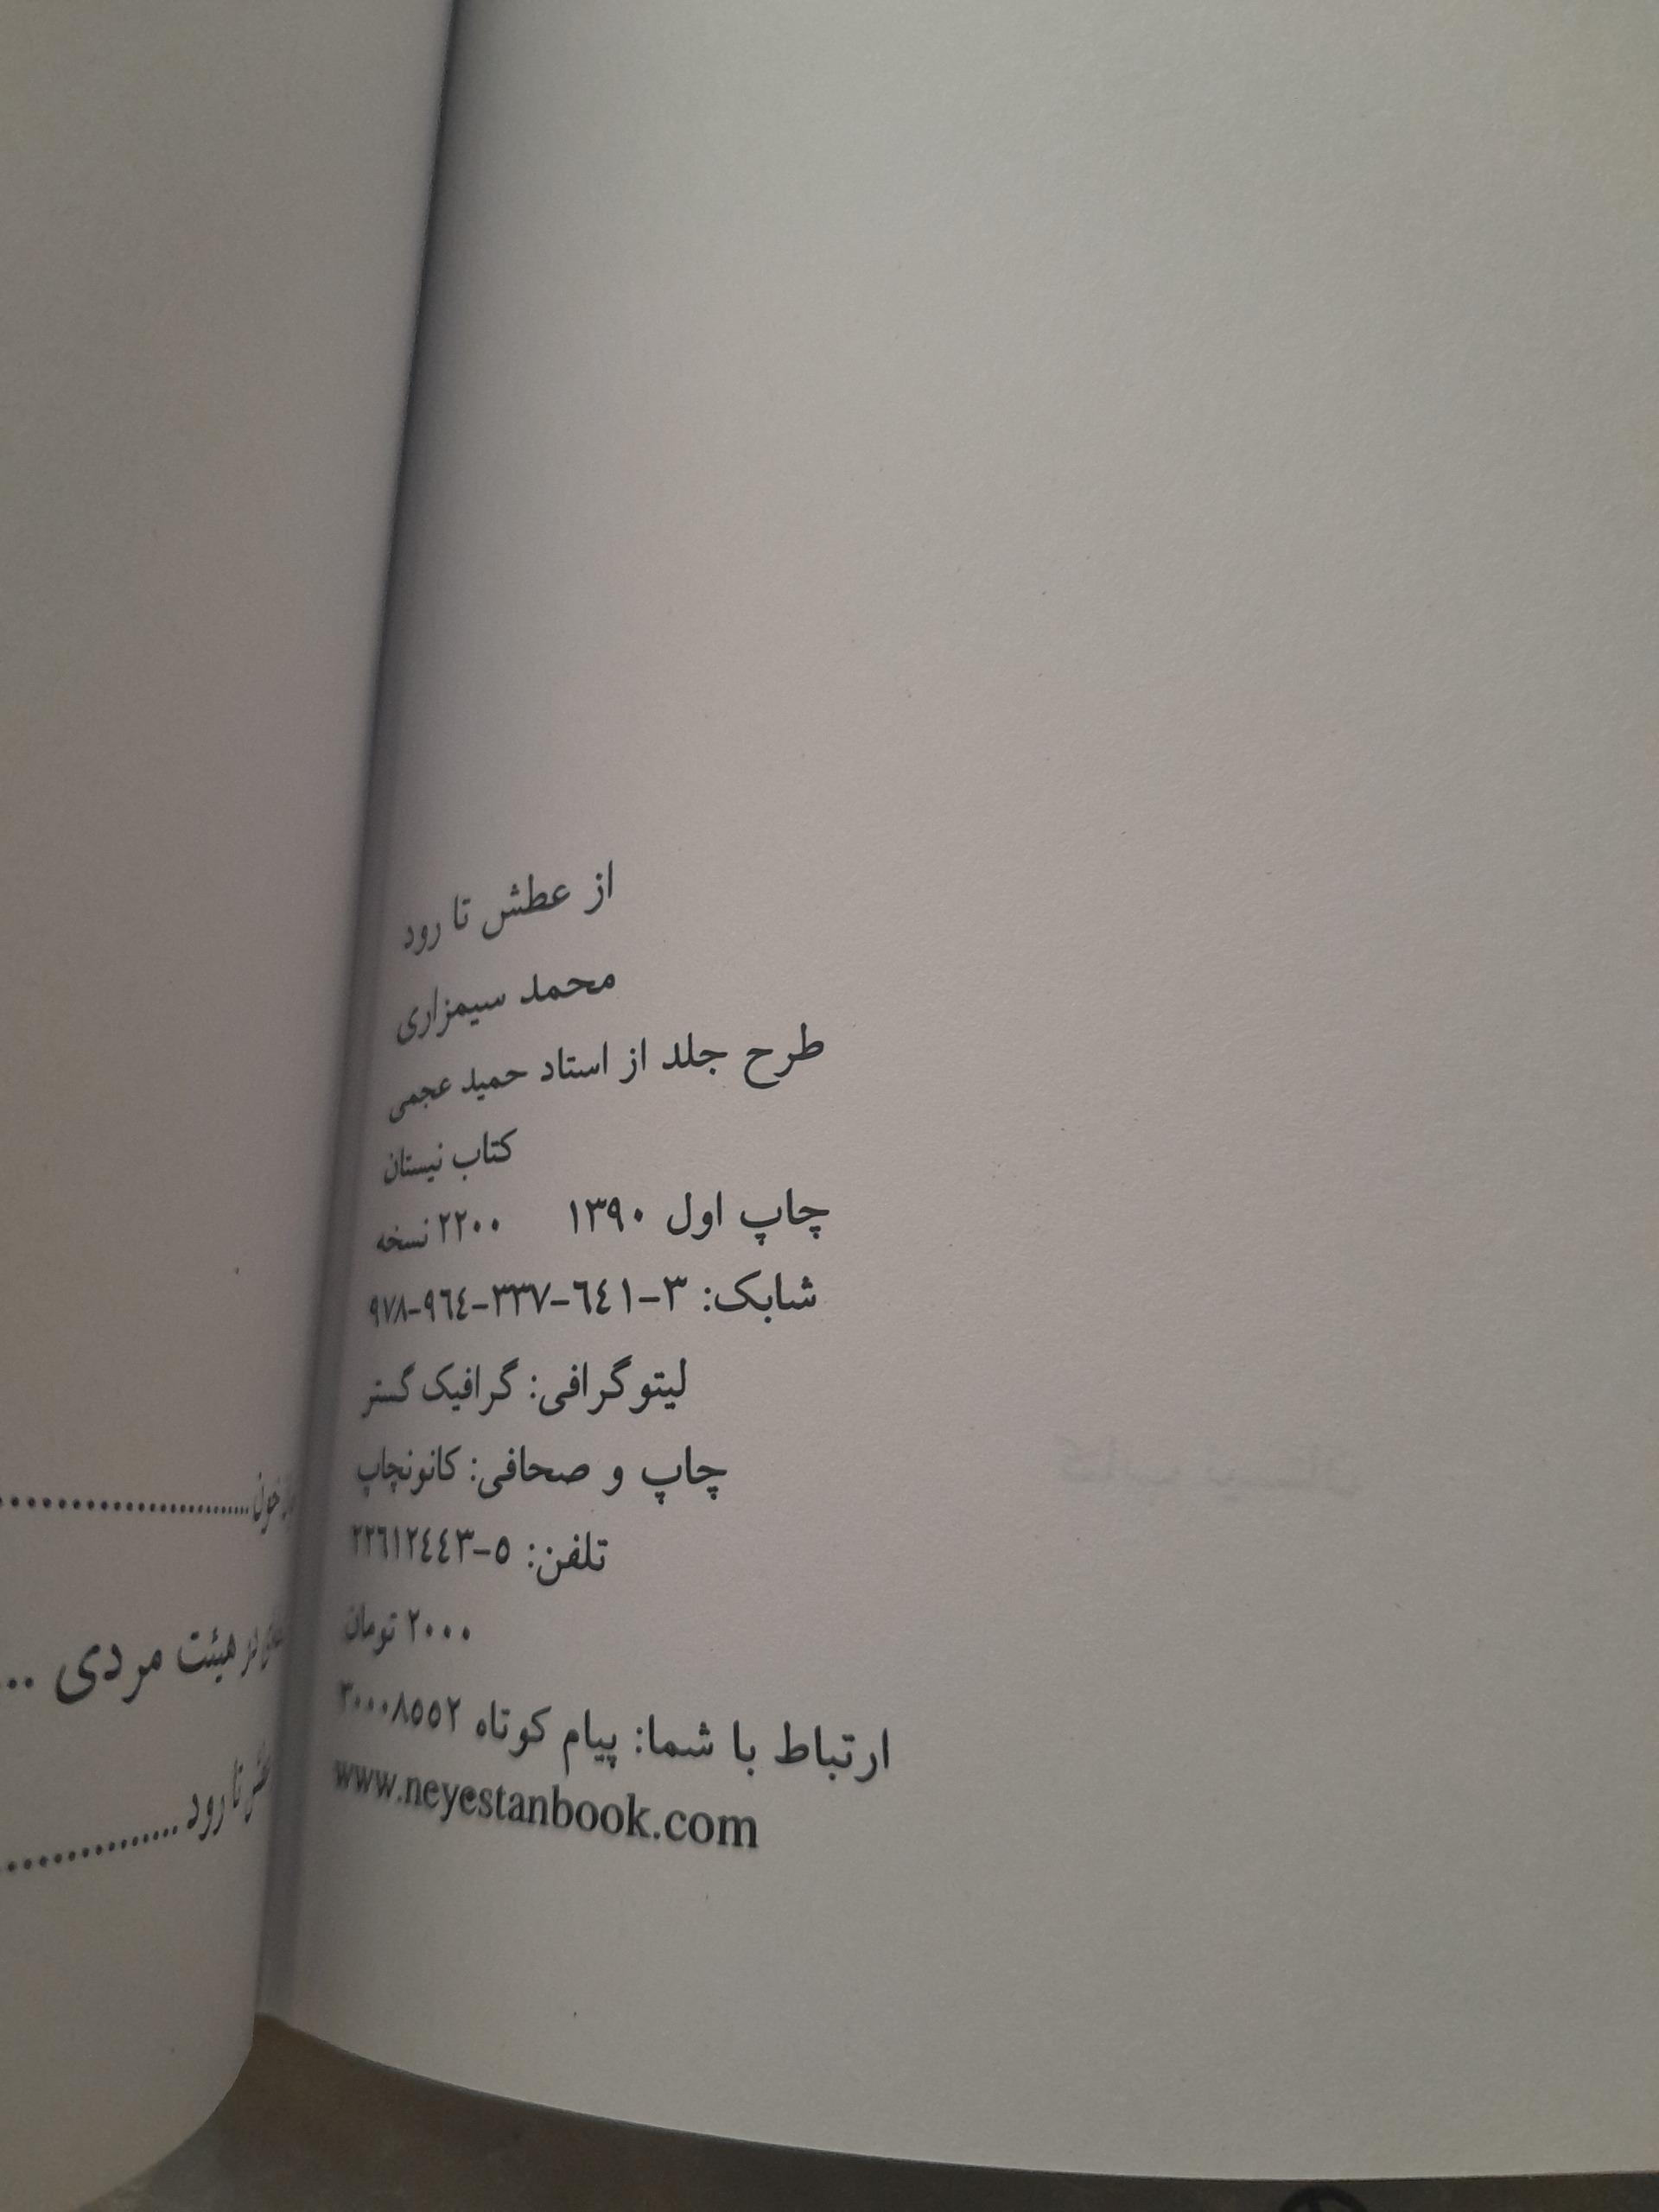 از عطش تا رود
محمد سیمزاری
طرح جلد از استاد حمید عجمی
کتاب نیستان
چاپ اول ۱۳۹۰ ۲۲۰۰ نسخه
شابک: ۳-۶۴۱-۳۳۷-۹۶۴-۹۷۸
لیتوگرافی: گرافیک گستر
چاپ و صحافی: کانونچاپ
تلفن: ۵-۲۲۶۱۲۴۴۳
۲۰۰۰ تومان
ارتباط با شما: پیام کوتاه ۳۰۰۰۸۵۵۲
www.neyestanbook.com
خون
هیئت مردی ...
تا رود